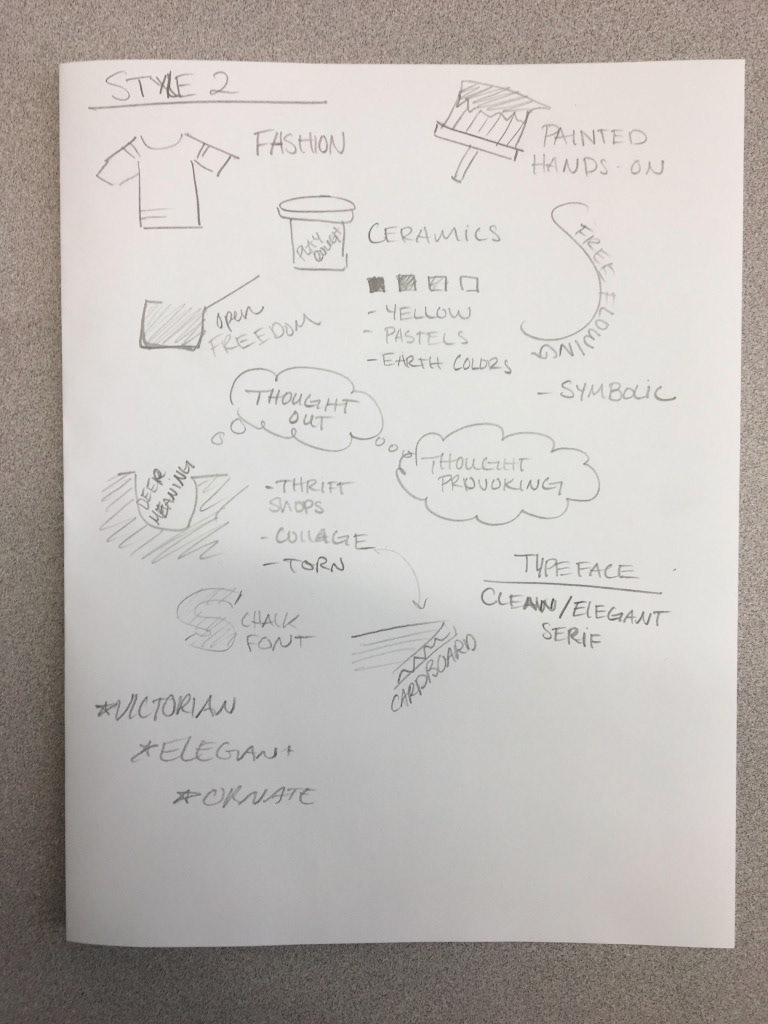 STYLE 2
FASHION
PAINTED
HANDS-ON
PLAY
DOUGH
CERAMICS
FREE FLOWING
open
FREEDOM
- YELLOW
- PASTELS
- EARTH COLORS
- SYMBOLIC
THOUGHT
OUT
THOUGHT
PROVOKING
DEEP
MEANING
- THRIFT
SHOPS
- COLLAGE
- TORN
TYPEFACE
CLEAN/ELEGANT
SERIF
S CHALK
FONT
CARDBOARD
*VICTORIAN
*ELEGANT
*ORNATE